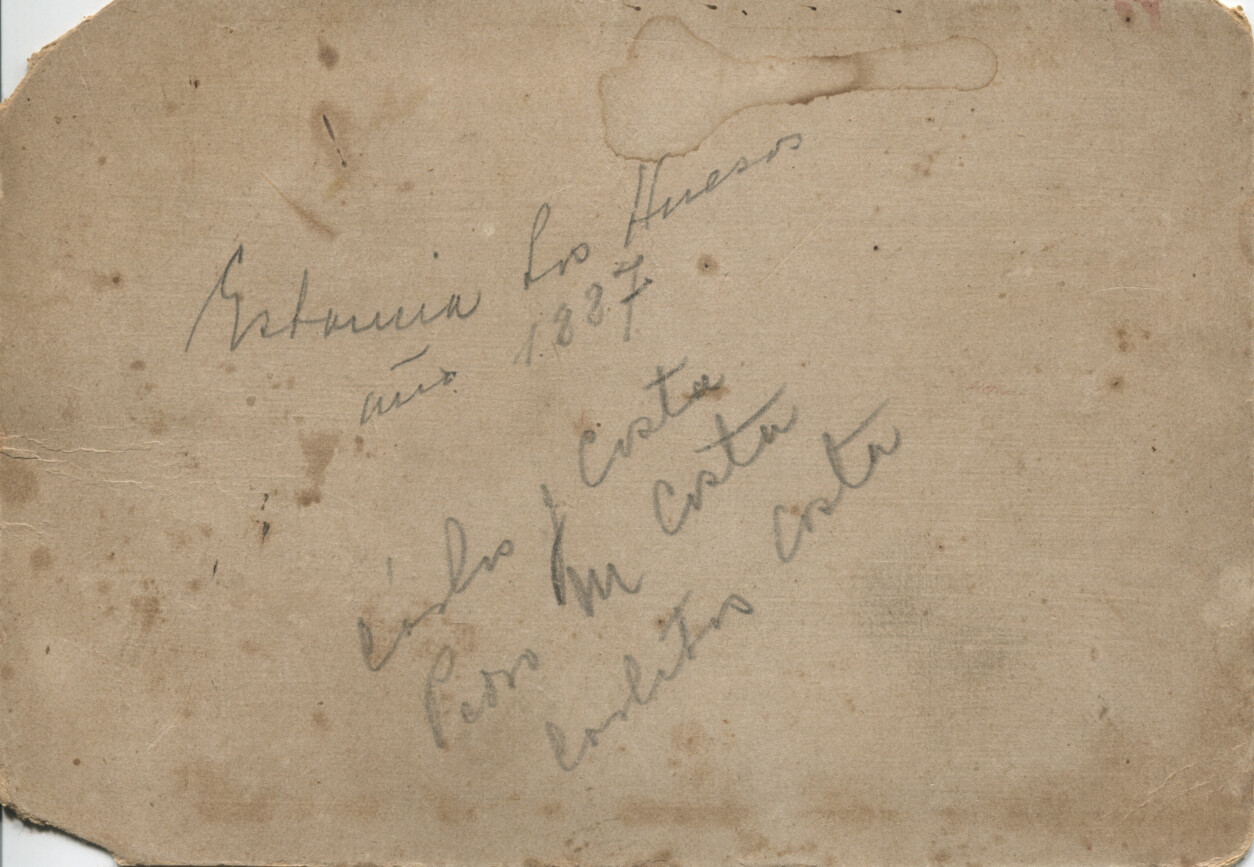 Estancia Los Huesos
año 1887
Carlos J Costa
Pedro M Costa
Carlitos Costa